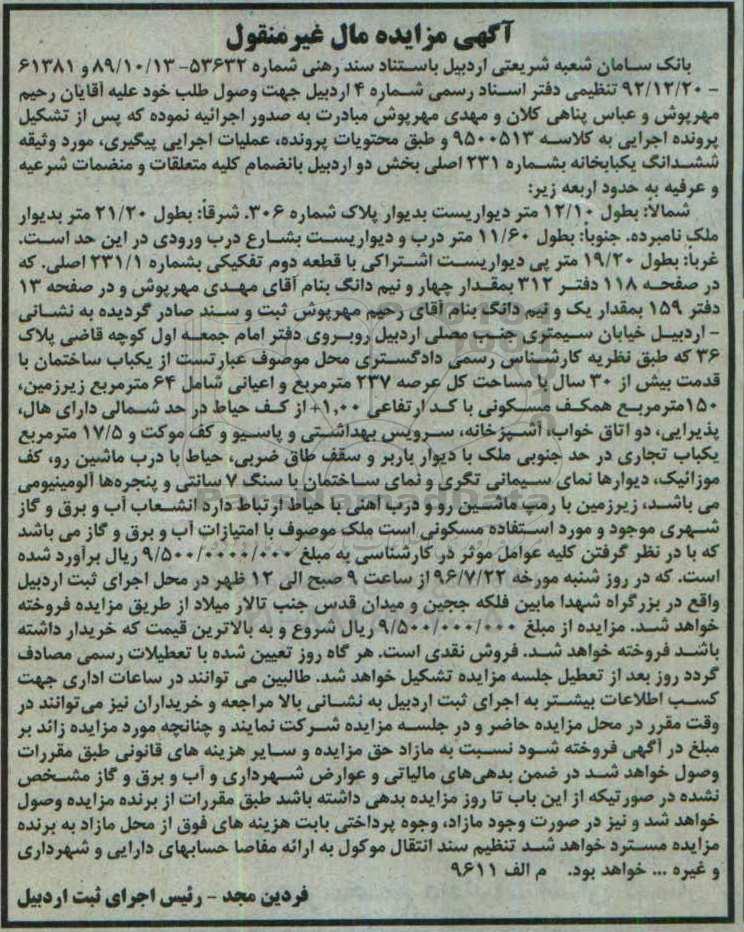 آگهی مزایده مال غیرمنقول
بانک سامان شعبه شریعتی اردبیل باستناد سند رهنی شماره ۵۳۶۳۲- ۸۹/۱۰/۱۳ و ۶۱۳۸۱
- ۹۲/۱۲/۲۰ تنظیمی دفتر اسناد رسمی شماره ۴ اردبیل جهت وصول طلب خود علیه آقایان رحیم
مهرپوش و عباس پناهی کلان و مهدی مهرپوش مبادرت به صدور اجرائیه نموده که پس از تشکیل
پرونده اجرایی به کلاسه ۹۵۰۰۵۱۳ و طبق محتویات پرونده، عملیات اجرایی پیگیری، مورد وثیقه
ششدانگ یکبابخانه بشماره ۲۳۱ اصلی بخش دو اردبیل بانضمام کلیه متعلقات و منضمات شرعیه
و عرفیه به حدود اربعه زیر:
شمالاً: بطول ۱۲/۱۰ متر دیواریست بدیوار پلاک شماره ۳۰۶. شرقاً: بطول ۲۱/۲۰ متر بدیوار
ملک نامبرده. جنوباً: بطول ۱۱/۶۰ متر درب و دیواریست بشارع درب ورودی در این حد است.
غرباً: بطول ۱۹/۲۰ متر پی دیواریست اشتراکی با قطعه دوم تفکیکی بشماره ۲۳۱/۱ اصلی. که
در صفحه ۱۱۸ دفتر ۳۱۲ بمقدار چهار و نیم دانگ بنام آقای مهدی مهرپوش و در صفحه ۱۳
دفتر ۱۵۹ بمقدار یک و نیم دانگ بنام آقای رحیم مهرپوش ثبت و سند صادر گردیده به نشانی
- اردبیل خیابان سیمتری جنب مصلی اردبیل روبروی دفتر امام جمعه اول کوچه قاضی پلاک
۳۶ که طبق نظریه کارشناس رسمی دادگستری محل موصوف عبارتست از یکباب ساختمان با
قدمت بیش از ۳۰ سال با مساحت کل عرصه ۲۳۷ مترمربع و اعیانی شامل ۶۴ مترمربع زیرزمین،
۱۵۰مترمربع همکف مسکونی با کد ارتفاعی ۱,۰۰+ از کف حیاط در حد شمالی دارای هال،
پذیرایی، دو اتاق خواب، آشپزخانه، سرویس بهداشتی و پاسیو و کف موکت و ۱۷/۵ مترمربع
یکباب تجاری در حد جنوبی ملک با دیوار باربر و سقف طاق ضربی، حیاط با درب ماشین رو، کف
موزائیک، دیوارها نمای سیمانی تگری و نمای ساختمان با سنگ ۷ سانتی و پنجره‌ها آلومینیومی
می باشد، زیرزمین با رمپ ماشین رو و درب آهنی با حیاط ارتباط دارد انشعاب آب و برق و گاز
شهری موجود و مورد استفاده مسکونی است ملک موصوف با امتیازات آب و برق و گاز می باشد
که با در نظر گرفتن کلیه عوامل موثر در کارشناسی به مبلغ ۹/۵۰۰/۰۰۰۰/۰۰۰ ریال برآورد شده
است. که در روز شنبه مورخه ۹۶/۷/۲۲ از ساعت ۹ صبح الی ۱۲ ظهر در محل اجرای ثبت اردبیل
واقع در بزرگراه شهدا مابین فلکه ججین و میدان قدس جنب تالار میلاد از طریق مزایده فروخته
خواهد شد. مزایده از مبلغ ۹/۵۰۰/۰۰۰/۰۰۰ ریال شروع و به بالاترین قیمت که خریدار داشته
باشد فروخته خواهد شد. فروش نقدی است. هر گاه روز تعیین شده با تعطیلات رسمی مصادف
گردد روز بعد از تعطیل جلسه مزایده تشکیل خواهد شد. طالبین می توانند در ساعات اداری جهت
کسب اطلاعات بیشتر به اجرای ثبت اردبیل به نشانی بالا مراجعه و خریداران نیز می‌توانند در
وقت مقرر در محل مزایده حاضر و در جلسه مزایده شرکت نمایند و چنانچه مورد مزایده زائد بر
مبلغ در آگهی فروخته شود نسبت به مازاد حق مزایده و سایر هزینه های قانونی طبق مقررات
وصول خواهد شد در ضمن بدهی‌های مالیاتی و عوارض شهرداری و آب و برق و گاز مشخص
نشده در صورتیکه از این باب تا روز مزایده بدهی داشته باشد طبق مقررات از برنده مزایده وصول
خواهد شد و نیز در صورت وجود مازاد، وجوه پرداختی بابت هزینه های فوق از محل مازاد به برنده
مزایده مسترد خواهد شد تنظیم سند انتقال موکول به ارائه مفاصا حسابهای دارایی و شهرداری
و غیره ... خواهد بود. م الف ۹۶۱۱
فردین مجد - رئیس اجرای ثبت اردبیل
ParsNamadData